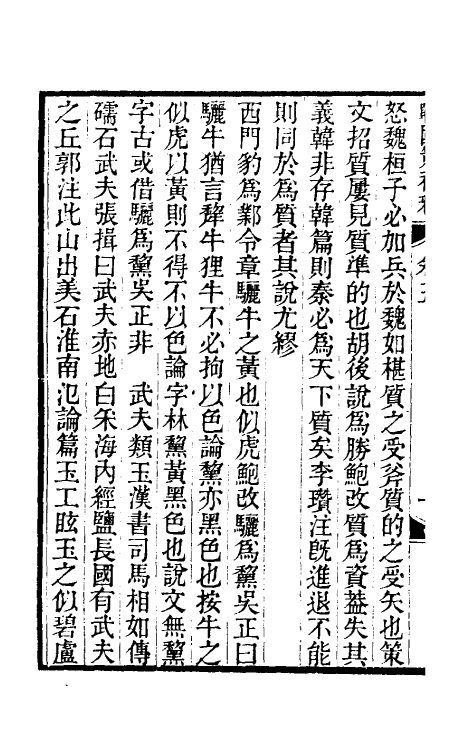 怒魏桓子必加兵於魏如椹質之受斧質的之受矢也策
文招質屢見質準的也胡後說爲勝鮑改質爲資葢失其
義韓非存韓篇則秦必爲天下質矣李瓚注旣進退不能
則同於爲質者其說尤繆
西門豹爲鄴令章驪牛之黃也似虎鮑改驪爲黧吳正曰
驪牛猶言犂牛貍牛不必拘以色論黧亦黑色也按牛之
似虎以黃則不得不以色論字林黧黃黑色也說文無黧
字古或借驪爲黧吳正非　武夫類玉漢書司馬相如傳
礝石武夫張揖曰武夫赤地白采海內經鹽長國有武夫
之丘郭注此山出美石淮南氾論篇玉工眩玉之似碧盧